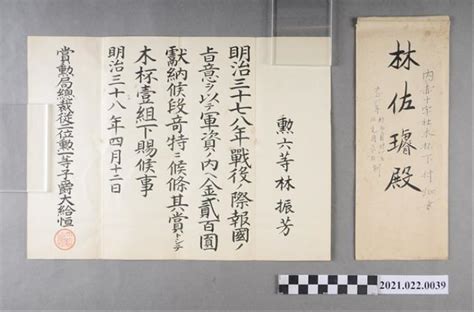 勲六等林振芳
明治三十七八年戰役ノ際報國ノ
旨意ヲ以テ軍資ノ內ヘ金貳百圓
獻納候段奇特ニ候條其賞トシテ
木杯壹組下賜候事
明治三十八年四月十二日
賞勲局總裁從二位勲一等子爵大給恒
林佐璿殿
2021.022.0039